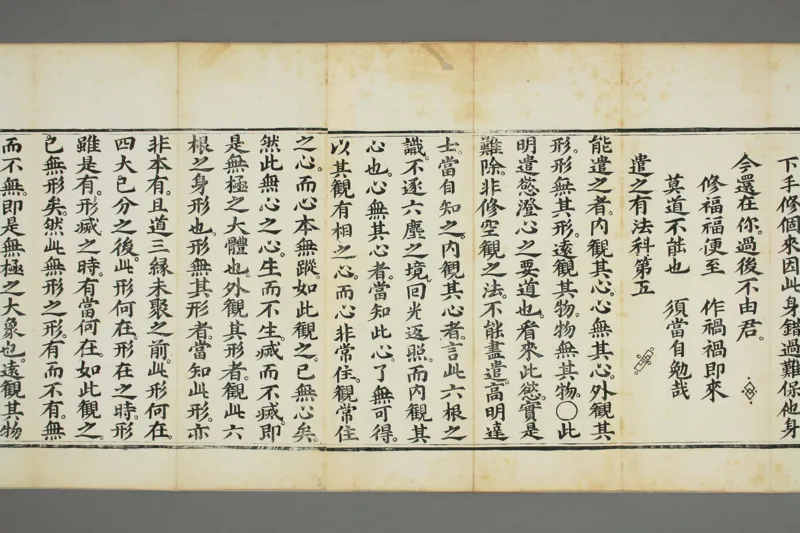 下手修個來因此身錯過難保他身
今還在你。過後不由君。
修福福便至　作禍禍即來
莫道不能也　須當自勉哉
遣之有法科第五
能遣之者。內觀其心。心無其心。外觀其
形。形無其形。遠觀其物。物無其物。〇此
明遣慾澄心之要道也。看來此慾。實是
難除。非修空觀之法。不能盡遣。高明達
士。當自知之。內觀其心者。言此六根之
識。不逐六塵之境。回光返照。而內觀其
心也。心無其心者。當知此心了無可得。
以其觀有相之心。而心非常住。觀常住
之心。而心本無蹤。如此觀之。已無心矣。
然此無心之心。生而不生。滅而不滅。即
是無極之大體也。外觀其形者。觀此六
根之身形也。形無其形者。當知此形。亦
非本有。且道三緣未聚之前。此形何在。
四大已分之後。此形何在。形在之時。形
雖是有。形滅之時。有當何在。如此觀之。
已無形矣。然此無形之形。有而不有。無
而不無。即是無極之大象也。遠觀其物